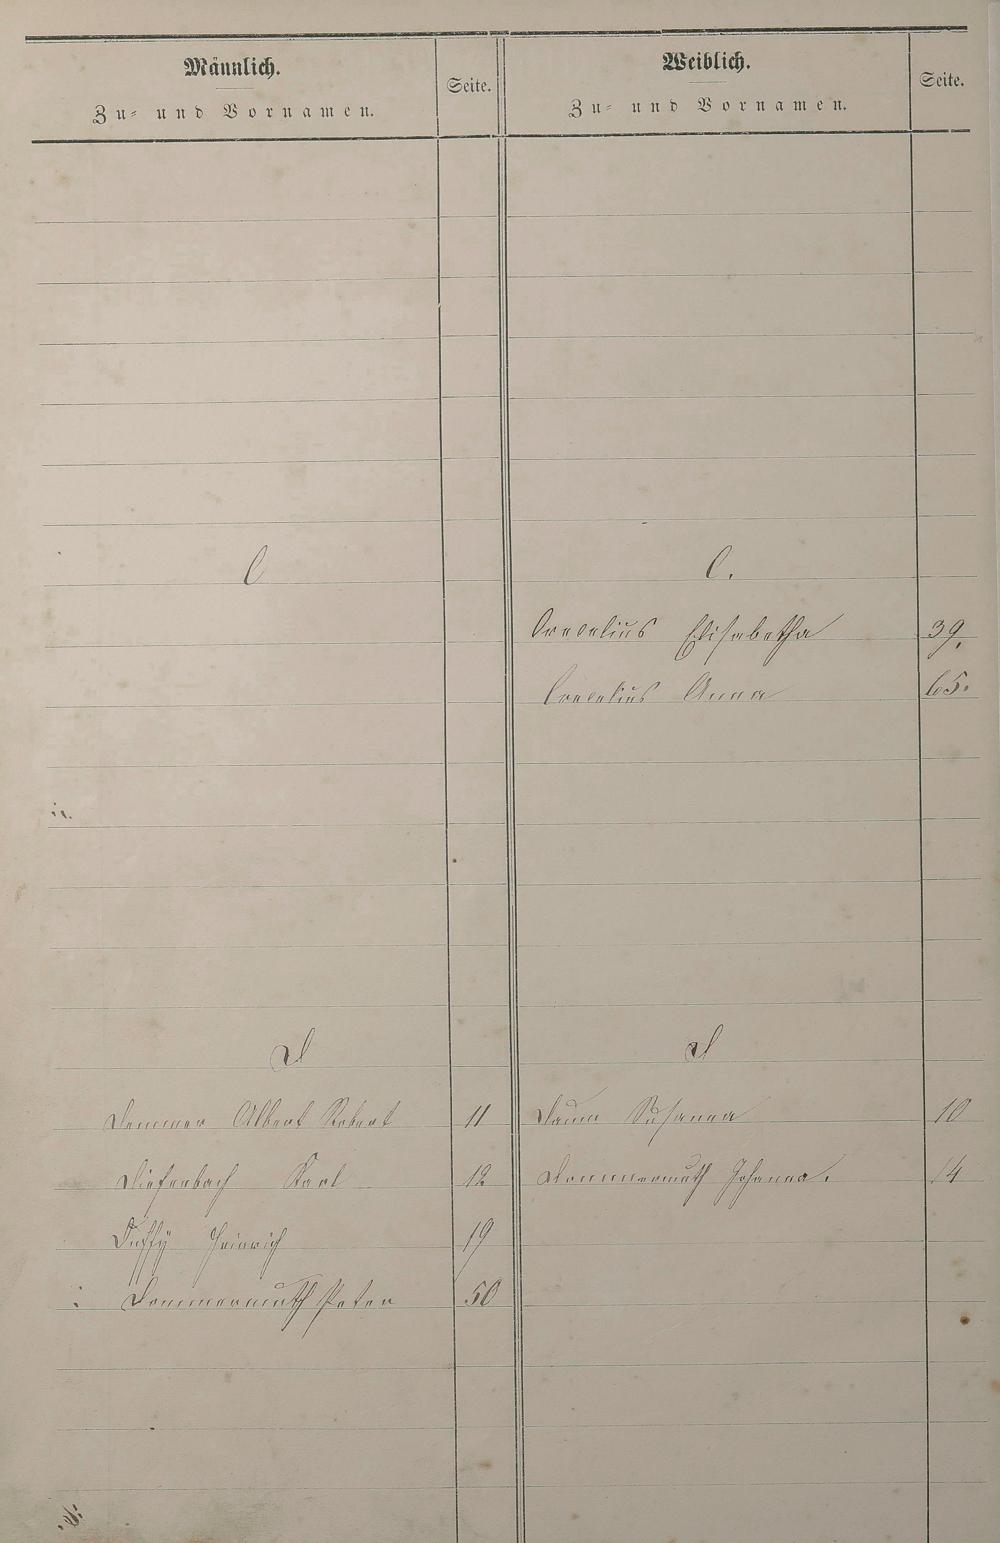 Männlich.
Zu- und Vornamen.
Seite.
Weiblich.
Zu- und Vornamen.
Seite.
C
C.
Crecelius Elisabetha 39.
Crecelius Anna 65.
D
D
Demmer Albert Robert 11
Daum Susanna 10
Diefenbach Karl 12
Dommermuth Johanna. 14
Duffy Heinrich 19
Dommermuth Peter 50